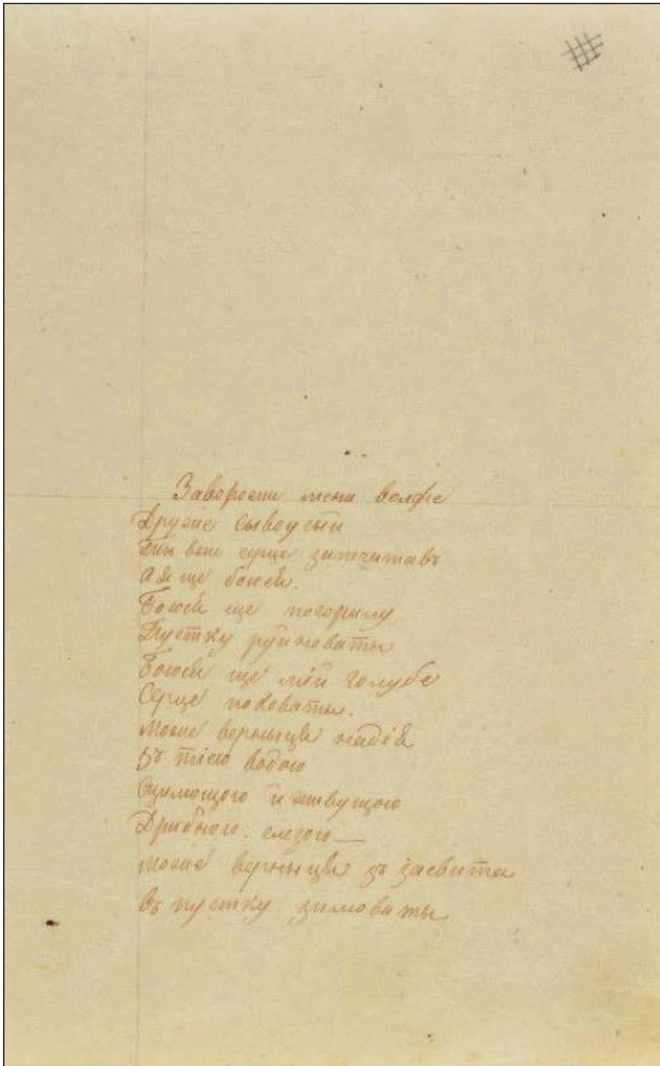 Заворожи мени волфе
Друже сывоусый
Ты вже серце запечатавъ
А я ще боюся.
Боюся ще погорилу
Пустку руйноваты
Боюся ще мій голубе
Серце поховаты.
Може вернытця надія
Зъ тією водою
Цилющою й живущою
Дрибною слезою —
Може вернытця зъ засвита
Въ пустку зимоваты